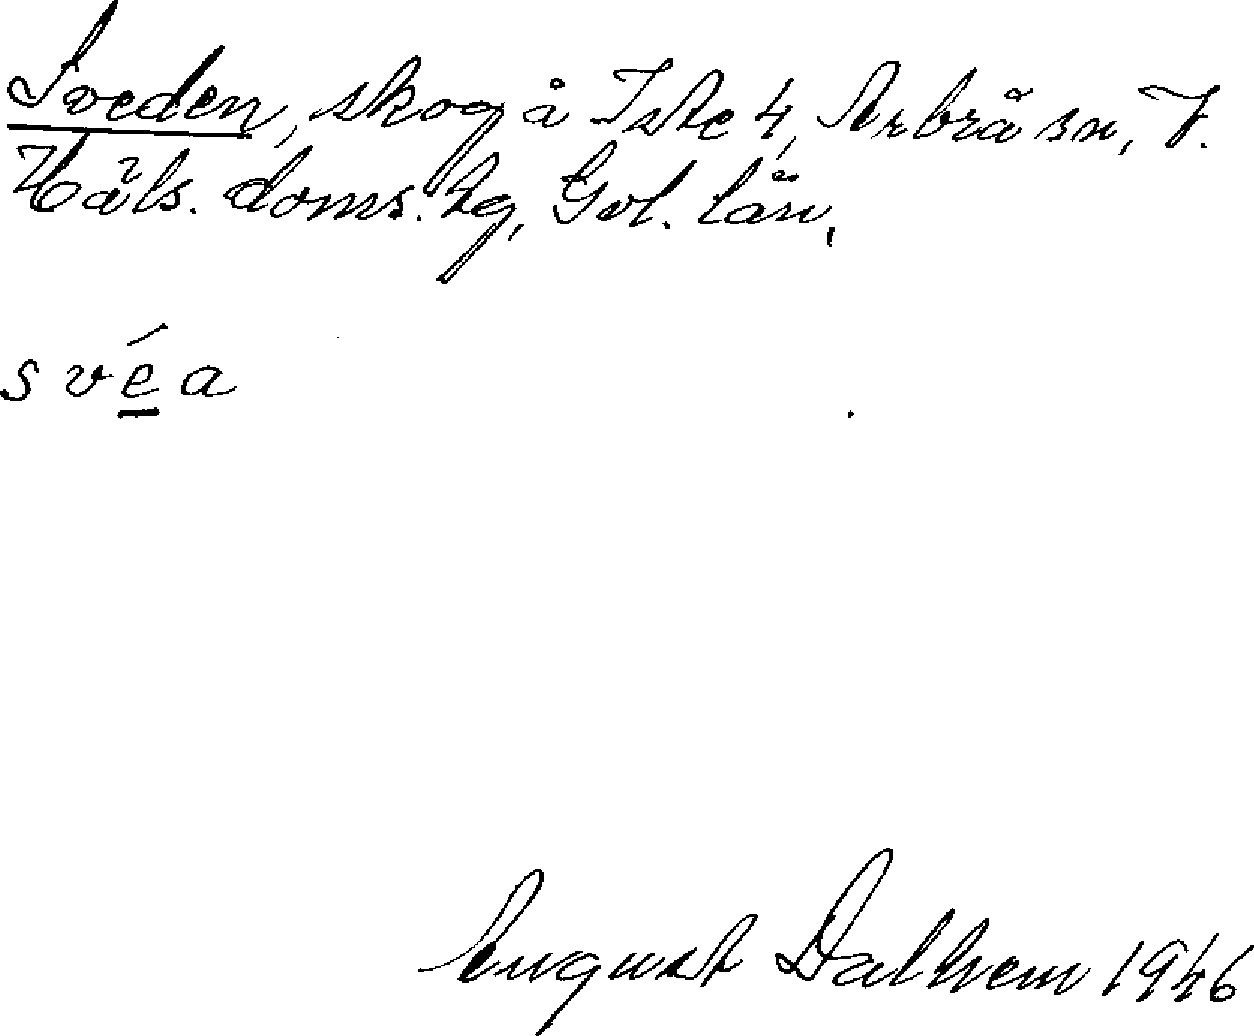 Sveden, skog å Iste 4, Arbrå sn, V.
Häls. doms. hg, Gvl. län,
svéa
August Dalhem 1946